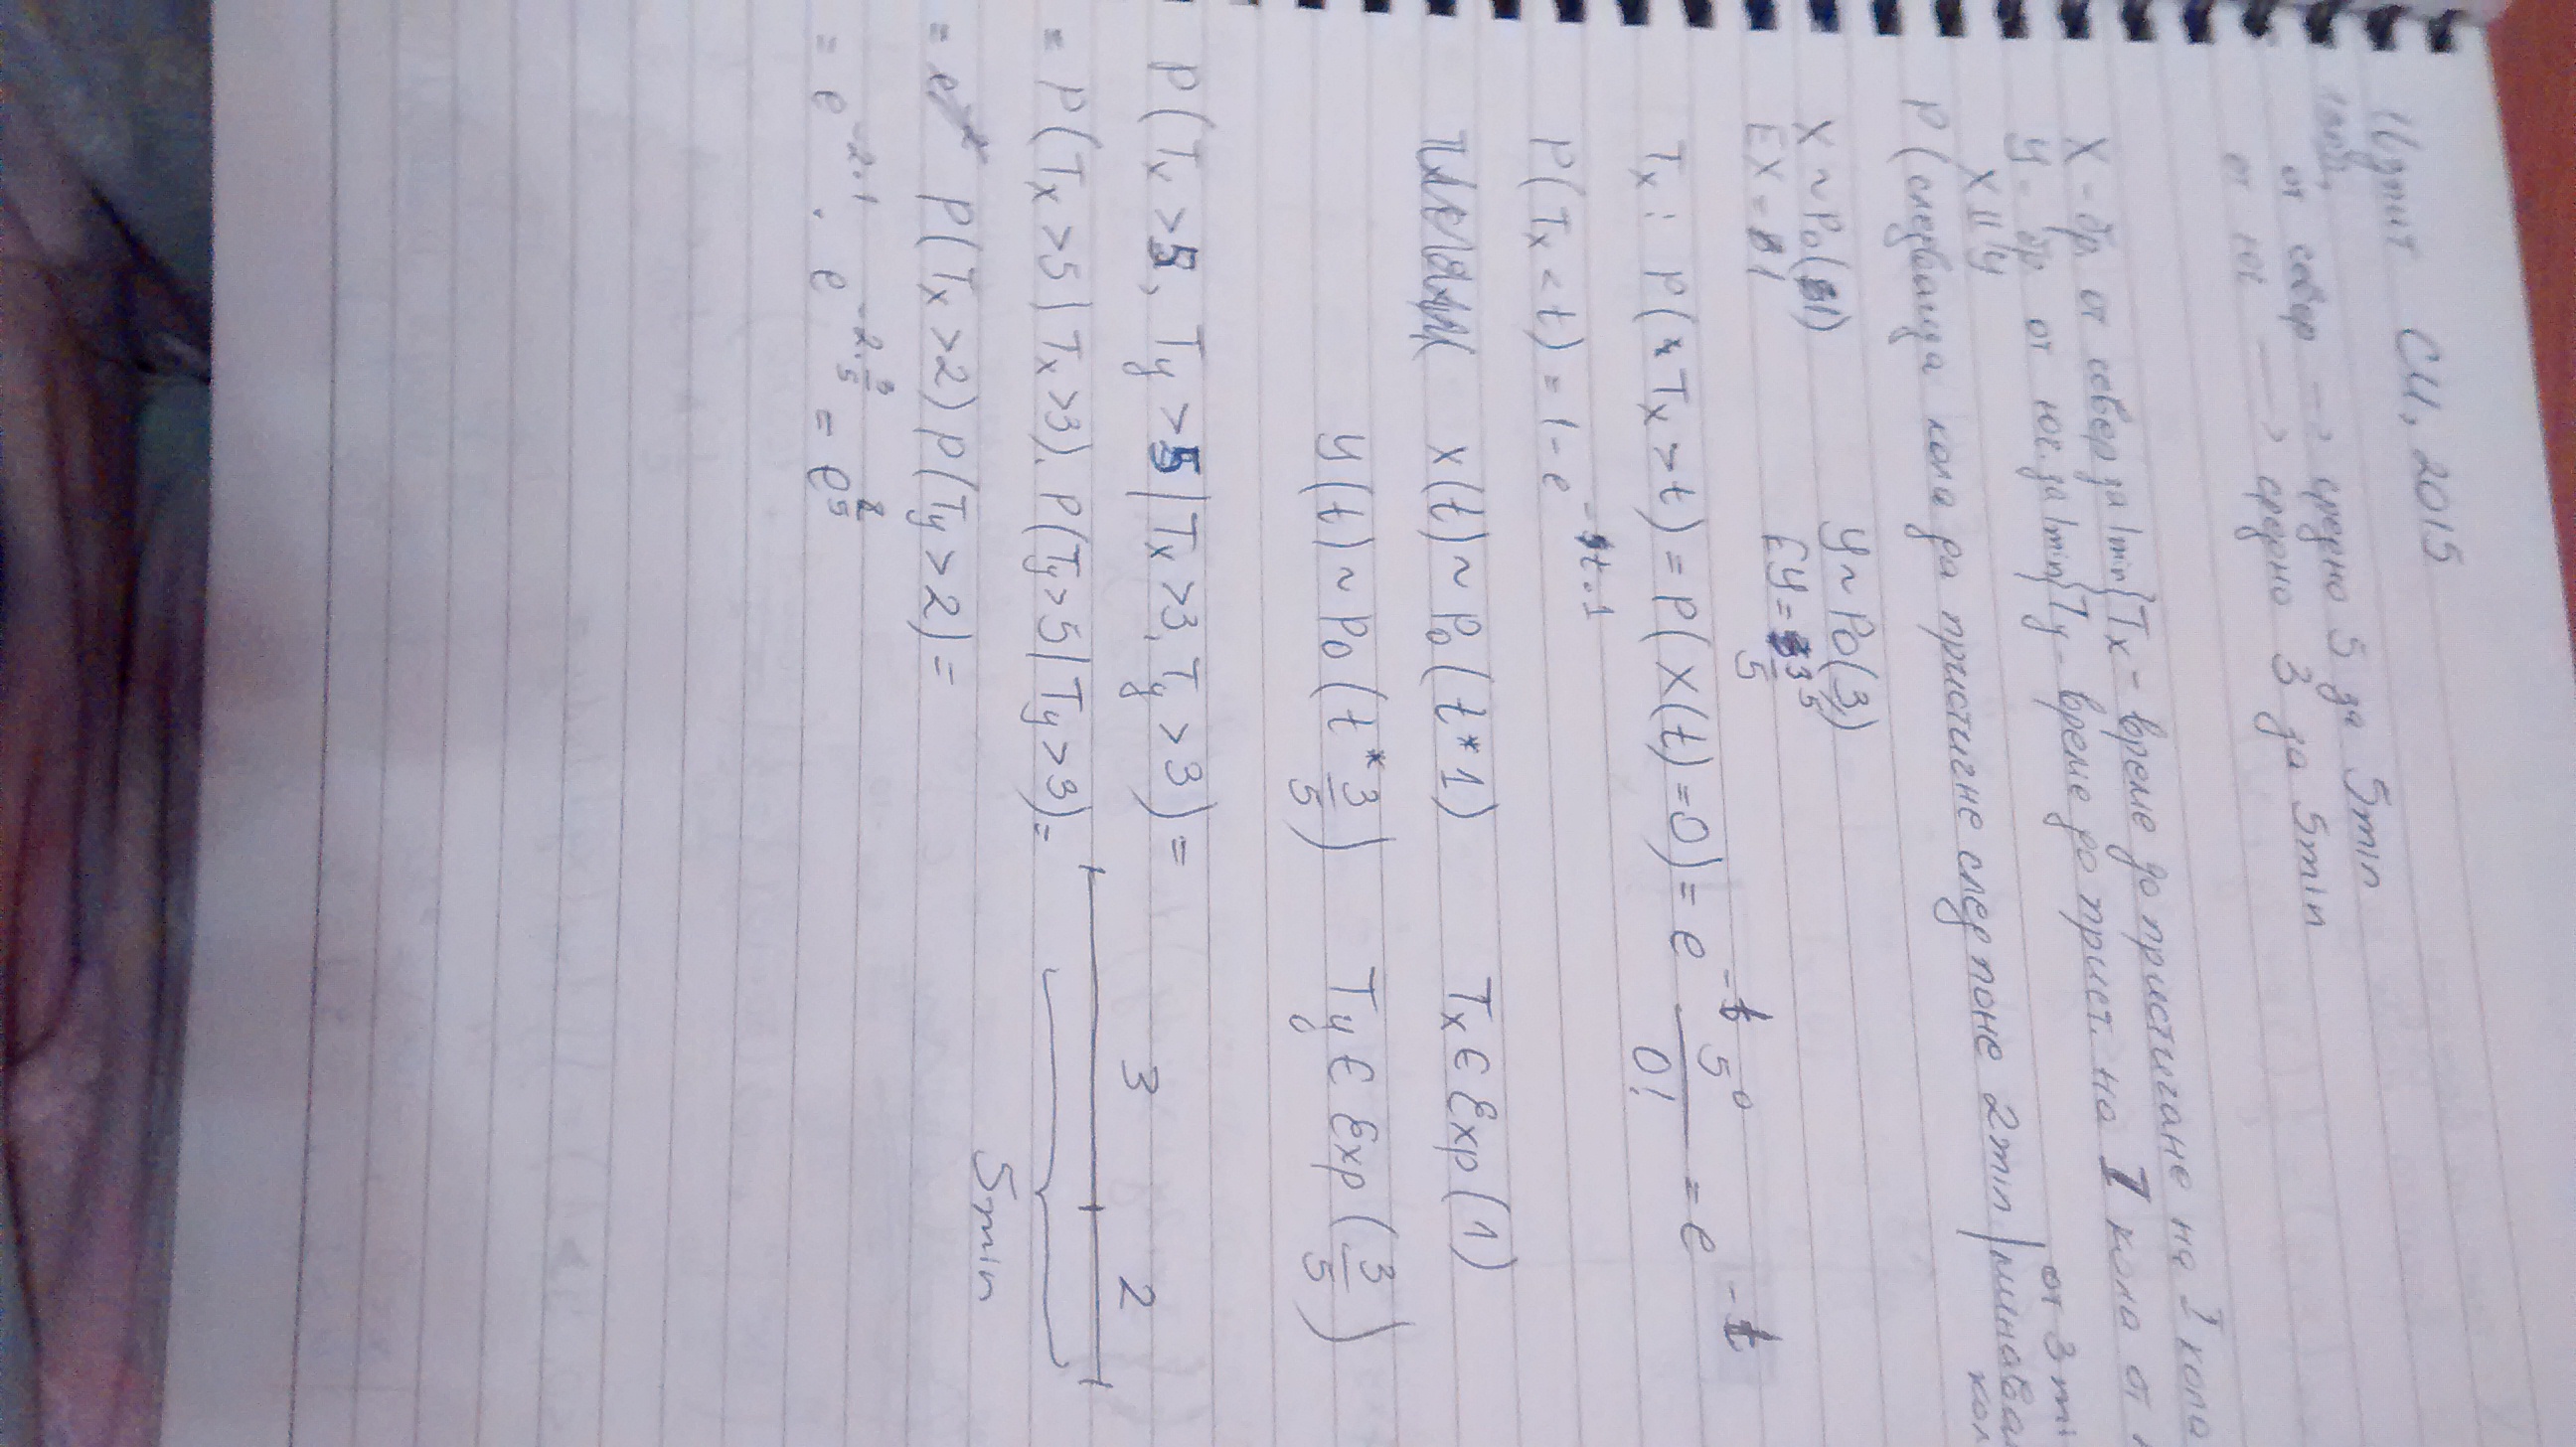 Изпит СИ, 2015
от север -> средно 5 за 5min
от юг -> средно 3 за 5min
X - бр. от север за 1min } Tx - време до пристигане на I кола
y - бр. от юг за 1min } Ty - време до прист. на I кола от
X ⫫ y
от 3 mi
P(следваща кола да пристигне след поне 2min | минава
кол
X ~ Po(1) y ~ Po(3/5)
EX = 1 Ey = 3/5
Tx : P(Tx > t) = P(X(t) = 0) = e^-t 5^0/0! = e^-t
P(Tx < t) = 1 - e^-t.1
X(t) ~ Po(t*1) Tx ∈ Exp(1)
y(t) ~ Po(t* 3/5) Ty ∈ Exp(3/5)
P(Tx > 5, Ty > 5 | Tx > 3, Ty > 3) =
3 2
= P(Tx > 5 | Tx > 3). P(Ty > 5 | Ty > 3) =
5min
= P(Tx > 2) P(Ty > 2) =
= e^-2.1 . e^-2.3/5 =